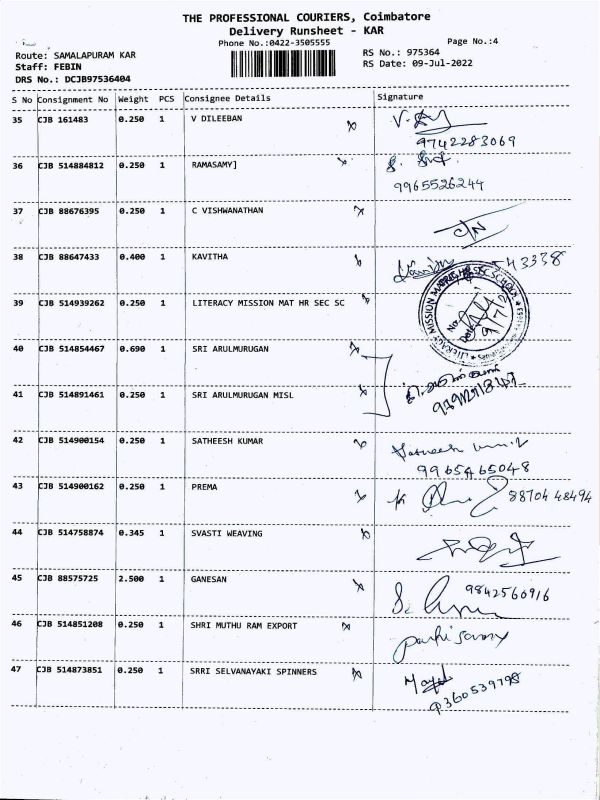 THE PROFESSIONAL COURIERS, Coimbatore
Delivery Runsheet - KAR
Phone No.:0422-3505555
Page No.:4
Route: SAMALAPURAM KAR
Staff: FEBIN
DRS No.: DCJB97536404
RS No.: 975364
RS Date: 09-Jul-2022
S No Consignment No Weight PCS Consignee Details Signature
35 CJB 161483 0.250 1 V DILEEBAN
9742283069
36 CJB 514884812 0.250 1 RAMASAMY]
9965526244
37 CJB 88676395 0.250 1 C VISHWANATHAN
38 CJB 88647433 0.400 1 KAVITHA
43338
39 CJB 514939262 0.250 1 LITERACY MISSION MAT HR SEC SC
40 CJB 514854467 0.690 1 SRI ARULMURUGAN
41 CJB 514891461 0.250 1 SRI ARULMURUGAN MISL
42 CJB 514900154 0.250 1 SATHEESH KUMAR
9965465048
43 CJB 514900162 0.250 1 PREMA
88704 48494
44 CJB 514758874 0.345 1 SVASTI WEAVING
45 CJB 88575725 2.500 1 GANESAN
9842560916
46 CJB 514851208 0.250 1 SHRI MUTHU RAM EXPORT
47 CJB 514873851 0.250 1 SRRI SELVANAYAKI SPINNERS
9360539798